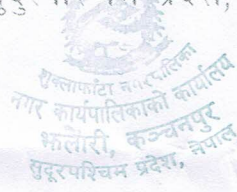 शुक्लाफाँटा नगरपालिका
नगर कार्यपालिकाको कार्यालय
झलारी, कञ्चनपुर
सुदूरपश्चिम प्रदेश, नेपाल